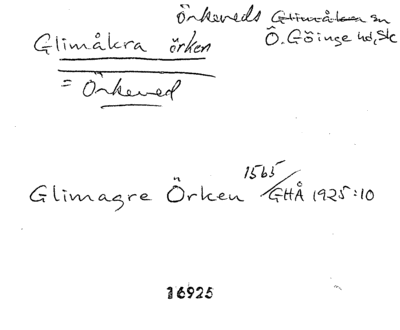 Örkeneds Glimåkra sn
Glimåkra örken Ö. Göinge hd, Sk
= Örkened
1565
Glimagre Örken GHÅ 1925:10
16925